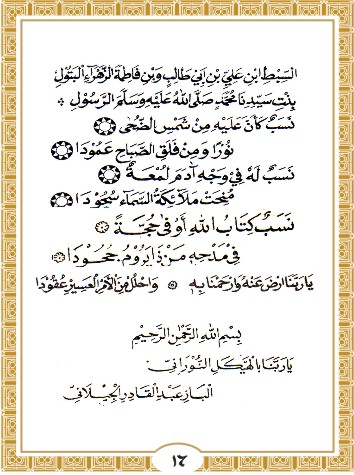 السِّبْطِ ابْنِ عَلِيِّ بْنِ اَبِي طَالِبٍ وَبْنِ فَاطِمَةَ الزَّهْرَاءِ الْبَتُولِ
بِنْتِ سَيِّدِنَا مُحَمَّدٍ صَلَّى اللهُ عَلَيْهِ وَسَلَّمَ الرَّسُوْلِ
نَسَبٌ كَاَنَّ عَلَيْهِ مِنْ شَمْسِ الضُّحٰى
نُوْرًا وَمِنْ فَلَقِ الصَّبَاحِ عَمُوْدَا
نَسَبٌ لَهُ فِيْ وَجْهِ آدَمَ لُمْعَةٌ
مُنِحَتْ مَلَائِكَةُ السَّمَاءِ سُجُوْدَا
نَسَبٌ كِتَابُ اللهِ أَوْفٰى حُجَّةً
فِيْ مَدْحِهِ مَنْ ذَا يَرُوْمُ جُحُوْدَا
يَارَبَّنَا ارْضَ عَنْهُ وَارْحَمْنَا بِهِ وَاحْلُلْ مِنَ الْاَمْرِ الْعَسِيْرِ عُقُوْدَا
بِسْمِ اللهِ الرَّحْمٰنِ الرَّحِيْمِ
يَارَبَّنَا بِالْهَيْكَلِ النُّوْرَانِيْ
الْبَازِ عَبْدِ الْقَادِرِ الْجِيْلَانِيْ
١٤